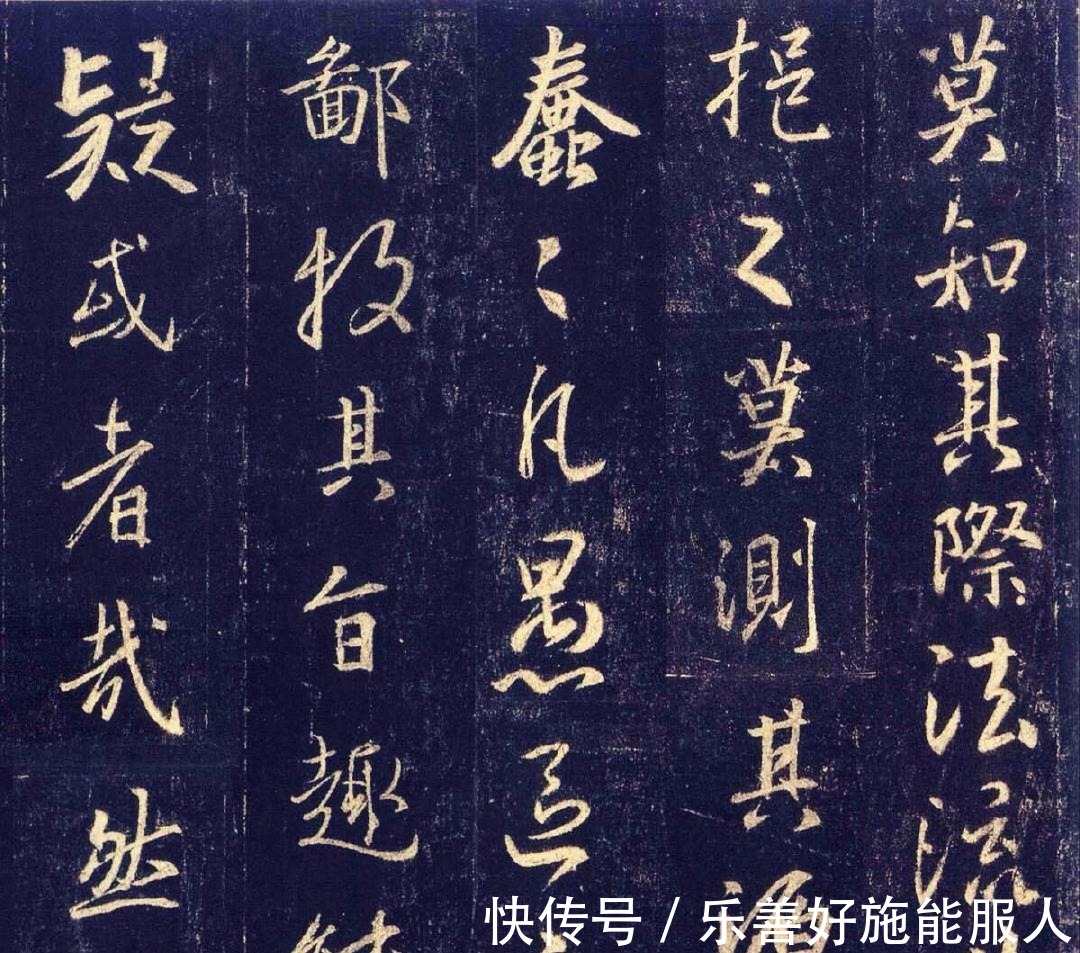 莫知其際法流
挹之莫測其源
蠢〻凡愚區
鄙投其旨趣能
疑或者哉然
快传号 / 乐善好施能服人